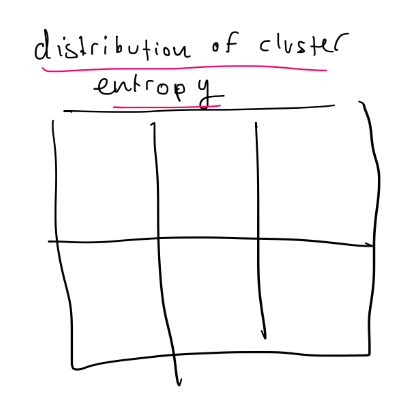 distribution of cluster
entropy